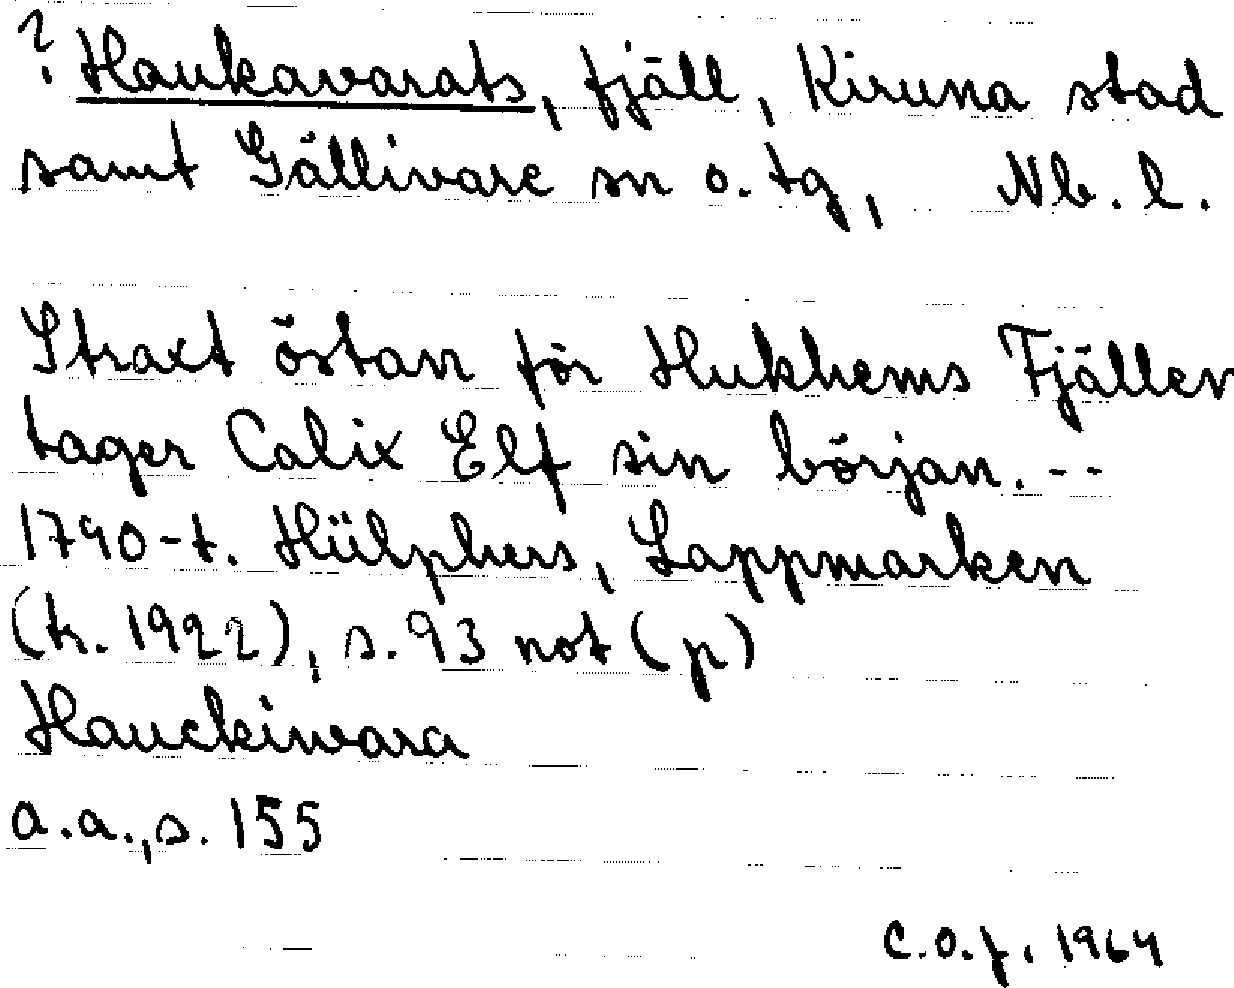 ? Haukavarats, fjäll, Kiruna stad
samt Gällivare sn o. tg, Nb. l.
Straxt östan för Hukhems Fjällen
tager Calix Elf sin början. --
1790-t. Hülphers, Lappmarken
(tr. 1922), s. 93 not (p)
Hauckiwara
a.a., s. 155
C.O.f. 1964